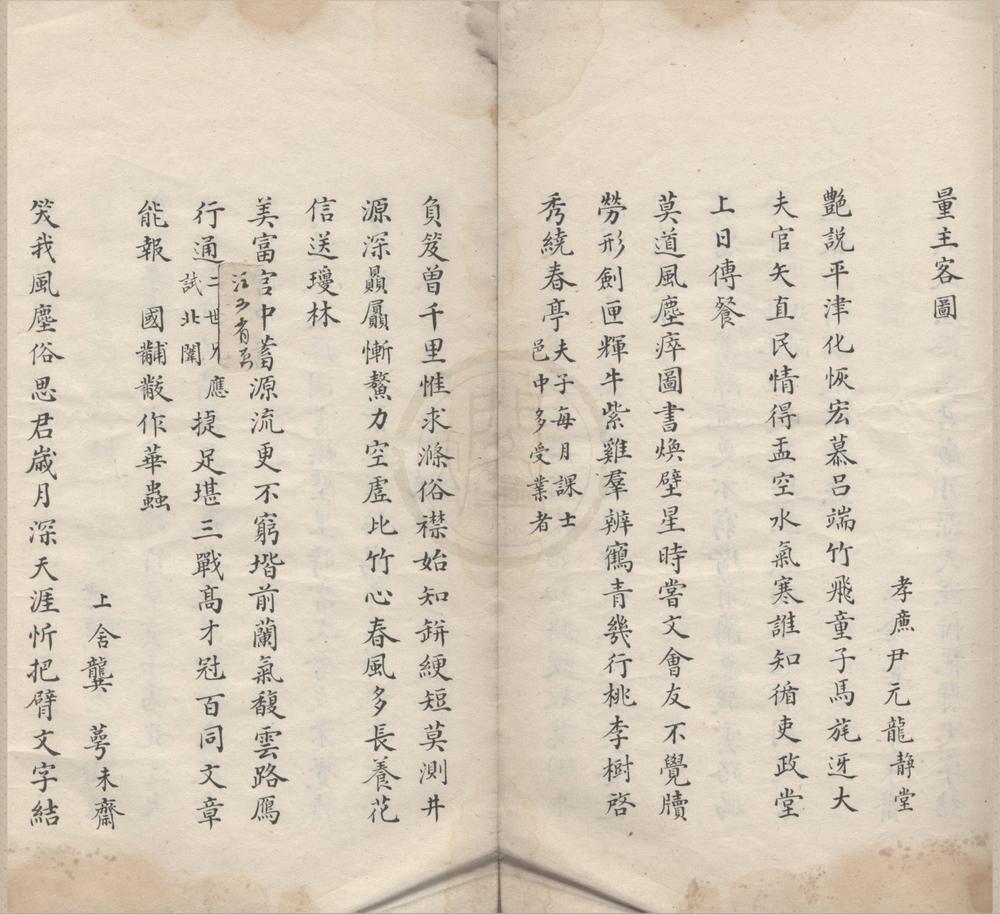 量主客圖
孝廉尹元龍靜堂
艷說平津化恢宏慕呂端竹飛童子馬旄迓大
夫官矢直民情得盂空水氣寒誰知循吏政堂
上日傳餐
莫道風塵瘁圖書煥壁星時嘗文會友不覺牘
勞形劍匣輝牛紫雞羣辨鶴青幾行桃李樹啓
秀繞春亭夫子每月課士邑中多受業者
負笈曾千里惟求滌俗襟始知缾綆短莫測井
源深贔屭慚鰲力空虛比竹心春風多長養花
信送瓊林
美富宮中蓄源流更不窮堦前蘭氣馥雲路鴈
行通二世兄應試北闈捷足堪三戰髙才冠百同文章
能報 國黼黻作華蟲
上舍龔 蕚未齋
笑我風塵俗思君歲月深天涯忻把臂文字結